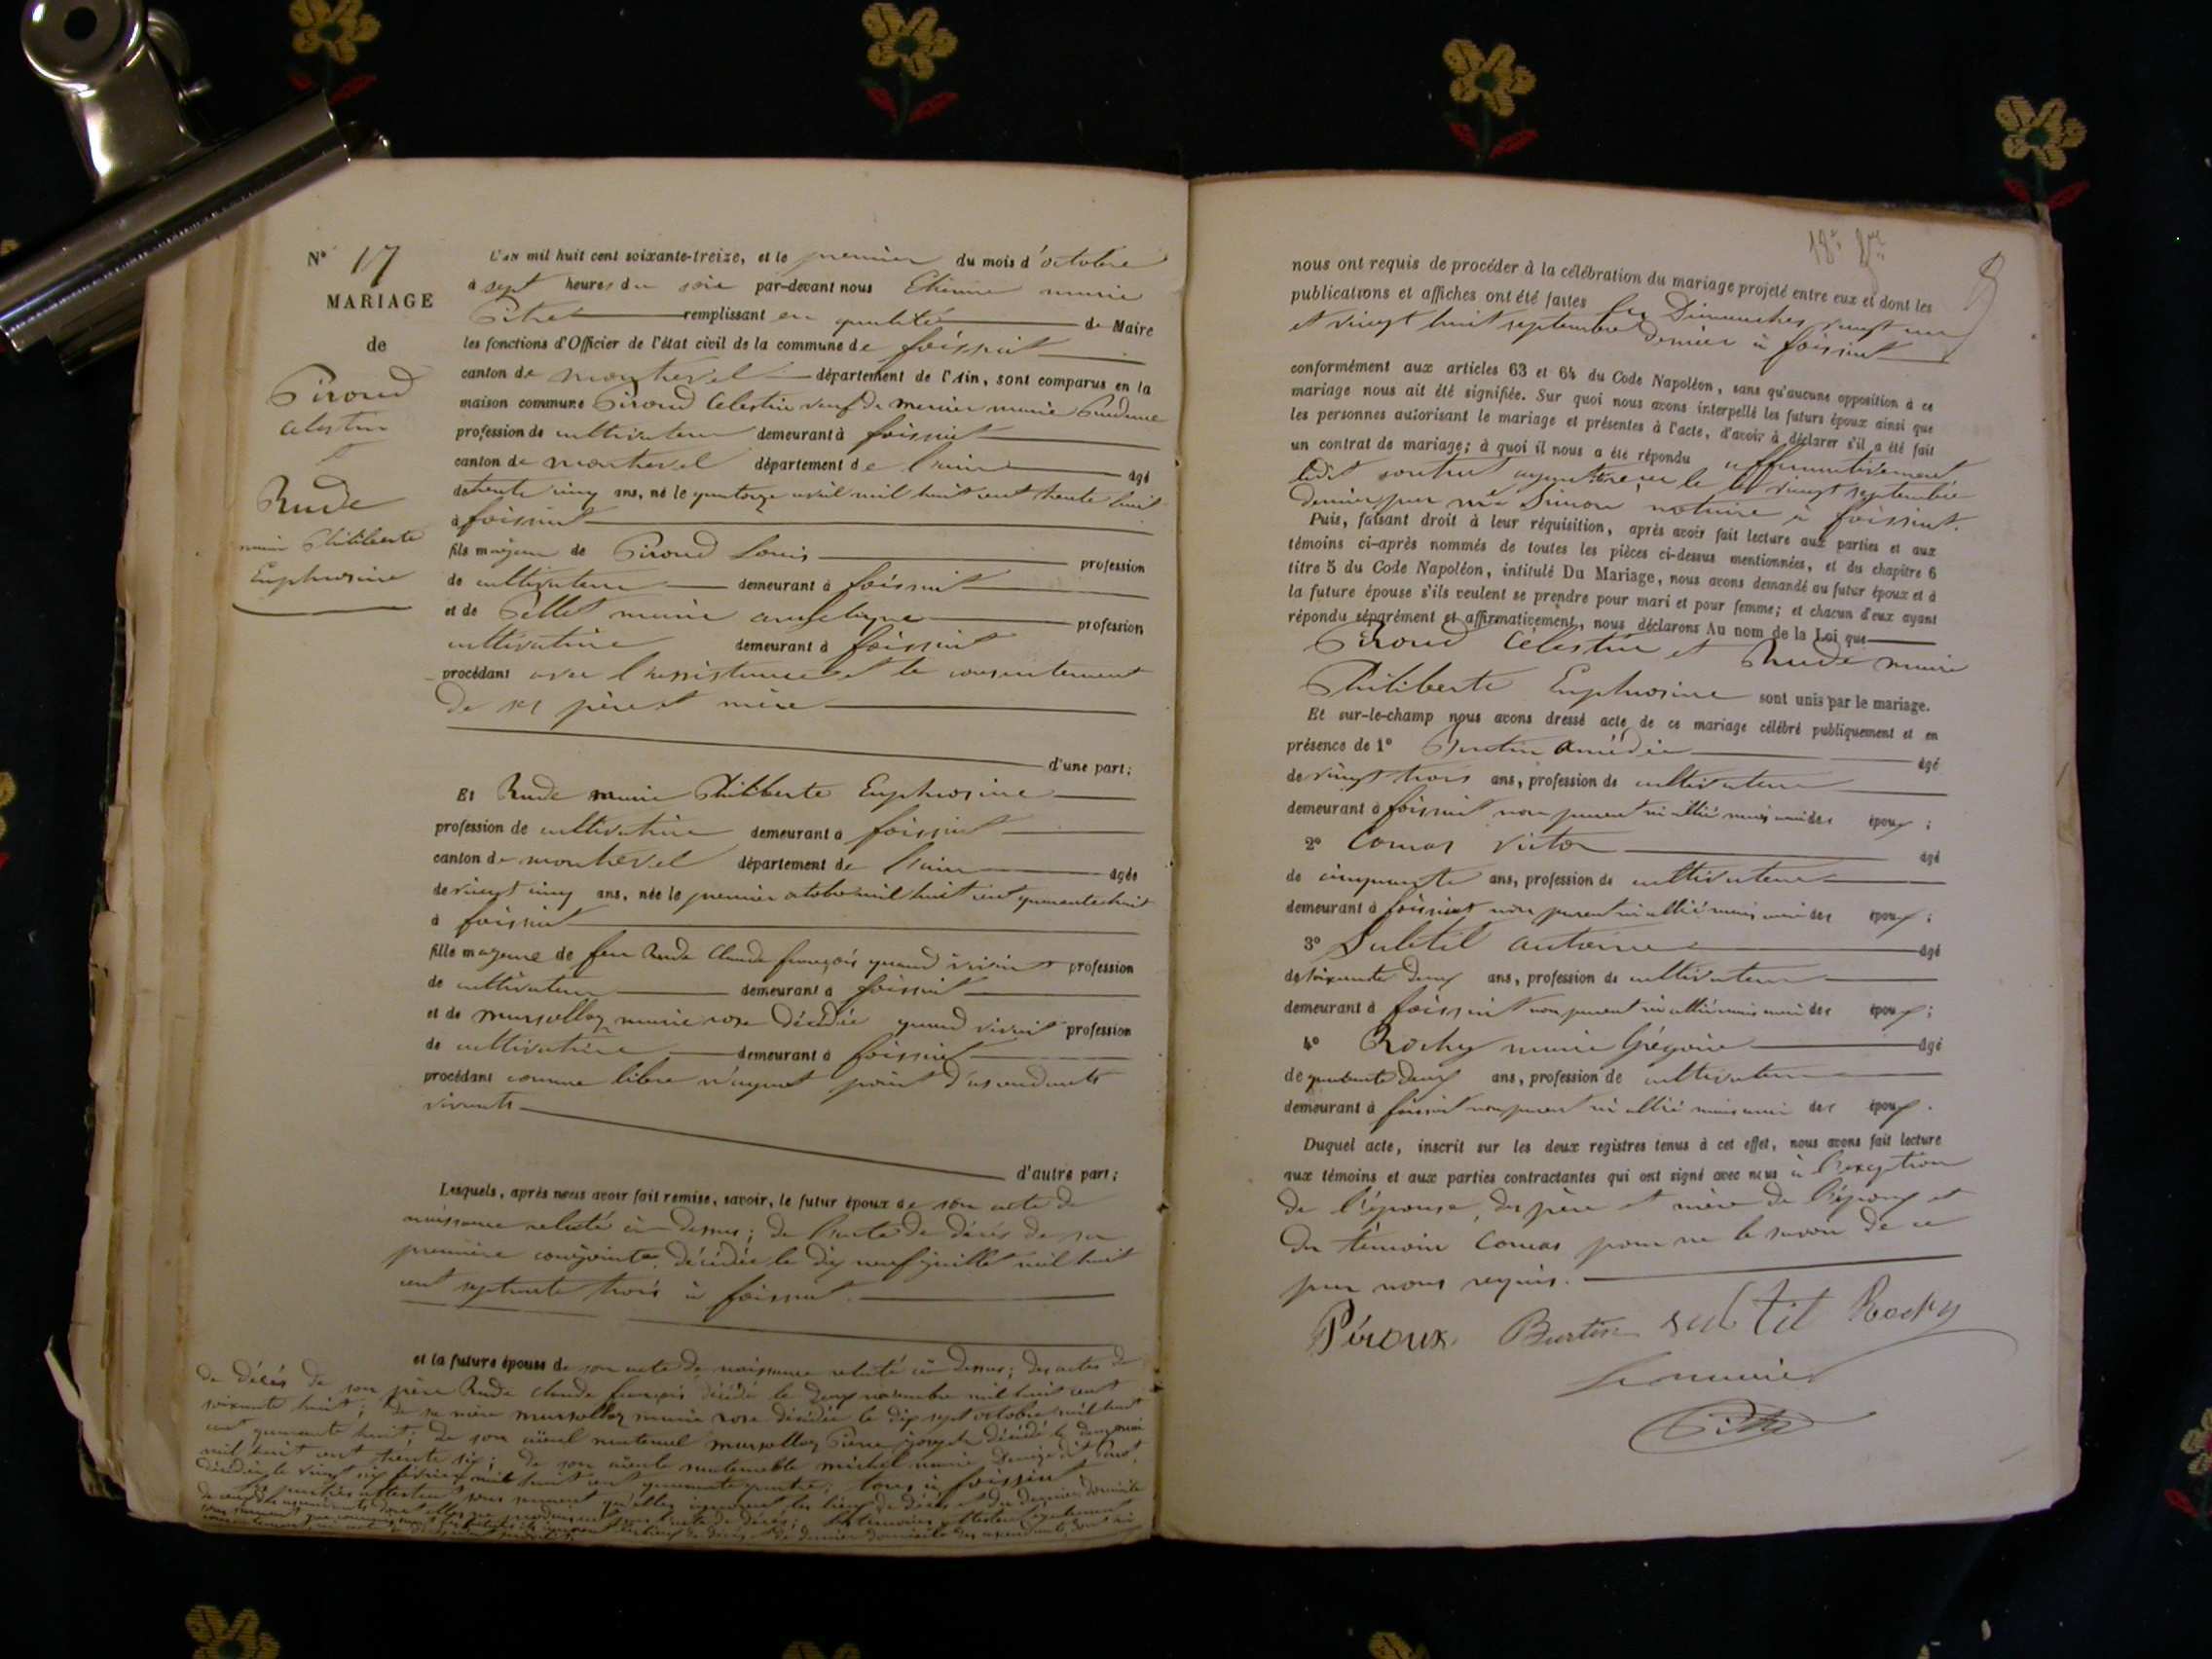 N° 17
MARIAGE
de
Piroud
Celestin
et
Rude
marie Philiberte
Euphrosine
L'AN mil huit cent soixante-treize, et le premier du mois d'octobre
à sept heures du soir par-devant nous Etienne marie
Pitre remplissant en qualité de Maire
les fonctions d'Officier de l'état civil de la commune de foissiat
canton de montrevel département de l'Ain, sont comparus en la
maison commune Piroud Celestin veuf de mercier marie Prudence
profession de cultivateur demeurant à foissiat
canton de montrevel département de l'ain âgé
de trente cinq ans, né le quatorze avril mil huit cent trente huit
à foissiat
fils majeur de Piroud Louis profession
de cultivateur demeurant à foissiat
et de Pellet marie angelique profession
cultivatrice demeurant à foissiat
procédant avec l'assistance et le consentement
de ses père et mère
d'une part;
Et Rude marie Philiberte Euphrosine
profession de cultivatrice demeurant à foissiat
canton de montrevel département de l'ain âgée
de vingt cinq ans, née le premier octobre mil huit cent quarante huit
à foissiat
fille majeure de feu Rude Claude françois quand vivait profession
de cultivateur demeurant à foissiat
et de marie rose décédée quand vivait profession
de cultivatrice demeurant à foissiat
procédant comme libre n'ayant point d'ascendants
vivants
d'autre part;
Lesquels, après nous avoir fait remise, savoir, le futur époux de son acte de
naissance relaté ci-dessus; de l'acte de décès de sa
première conjointe, décédée le dix neuf juillet mil huit
cent septante trois à foissiat
et la future épouse de son acte de naissance relaté ci-dessus; des actes de
de décès de son père Rude claude françois décédé le deux novembre mil huit cent
soixante huit; de sa mère marie rose décédée le dix sept octobre mil huit
cent quarante huit; de son aïeul maternel Pierre joseph décédé le deux
mil huit cent trente six; de son aïeule maternelle michel marie
décédée le vingt six février mil huit cent quarante quatre; tous à foissiat
nous ont requis de procéder à la célébration du mariage projeté entre eux et dont les
publications et affiches ont été faites les Dimanches vingt un
et vingt huit septembre dernier à foissiat
conformément aux articles 63 et 64 du Code Napoléon, sans qu'aucune opposition à ce
mariage nous ait été signifiée. Sur quoi nous avons interpellé les futurs époux ainsi que
les personnes autorisant le mariage et présentes à l'acte, d'avoir à déclarer s'il a été fait
un contrat de mariage; à quoi il nous a été répondu affirmativement
ledit contrat ayant été reçu le vingt septembre
dernier par me Simon notaire à foissiat.
Puis, faisant droit à leur réquisition, après avoir fait lecture aux parties et aux
témoins ci-après nommés de toutes les pièces ci-dessus mentionnées, et du chapitre 6
titre 5 du Code Napoléon, intitulé Du Mariage, nous avons demandé au futur époux et à
la future épouse s'ils veulent se prendre pour mari et pour femme; et chacun d'eux ayant
répondu séparément et affirmativement, nous déclarons Au nom de la Loi que
Piroud Célestin et Rude marie
Philiberte Euphrosine sont unis par le mariage.
Et sur-le-champ nous avons dressé acte de ce mariage célébré publiquement et en
présence de 1° Burtin Amédée âgé
de vingt trois ans, profession de cultivateur
demeurant à foissiat non parent ni allié mais ami des époux;
2° Comas victor âgé
de cinquante ans, profession de cultivateur
demeurant à foissiat non parent ni allié mais ami des époux;
3° Subtil antoine âgé
de soixante deux ans, profession de cultivateur
demeurant à foissiat non parent ni allié mais ami des époux;
4° Rochy marie Grégoire âgé
de quarante deux ans, profession de cultivateur
demeurant à foissiat non parent ni allié mais ami des époux.
Duquel acte, inscrit sur les deux registres tenus à cet effet, nous avons fait lecture
aux témoins et aux parties contractantes qui ont signé avec nous à l'exception
de l'épouse, des père et mère de l'époux et
du témoin Comas pour ne le savoir de ce
par nous requis.
Péroux Burtin subtil Rochy
Pitre